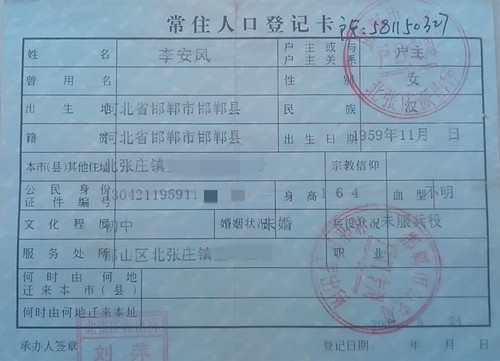 常住人口登记卡 581150327
姓名 李安风 户主或与户主关系 户主
曾用名 性别 女
出生地 河北省邯郸市邯郸县 民族 汉
籍贯 河北省邯郸市邯郸县 出生日期 1959年11月 日
本市(县)其他住址 北张庄镇 宗教信仰
公民身份证件编号 130421195911 身高 164 血型 不明
文化程度 初中 婚姻状况 未婚 兵役状况 未服兵役
服务处所 邯山区北张庄镇 职业
何时由何地迁来本市(县)
何时由何地迁来本址
承办人签章 登记日期 年 月 24 日